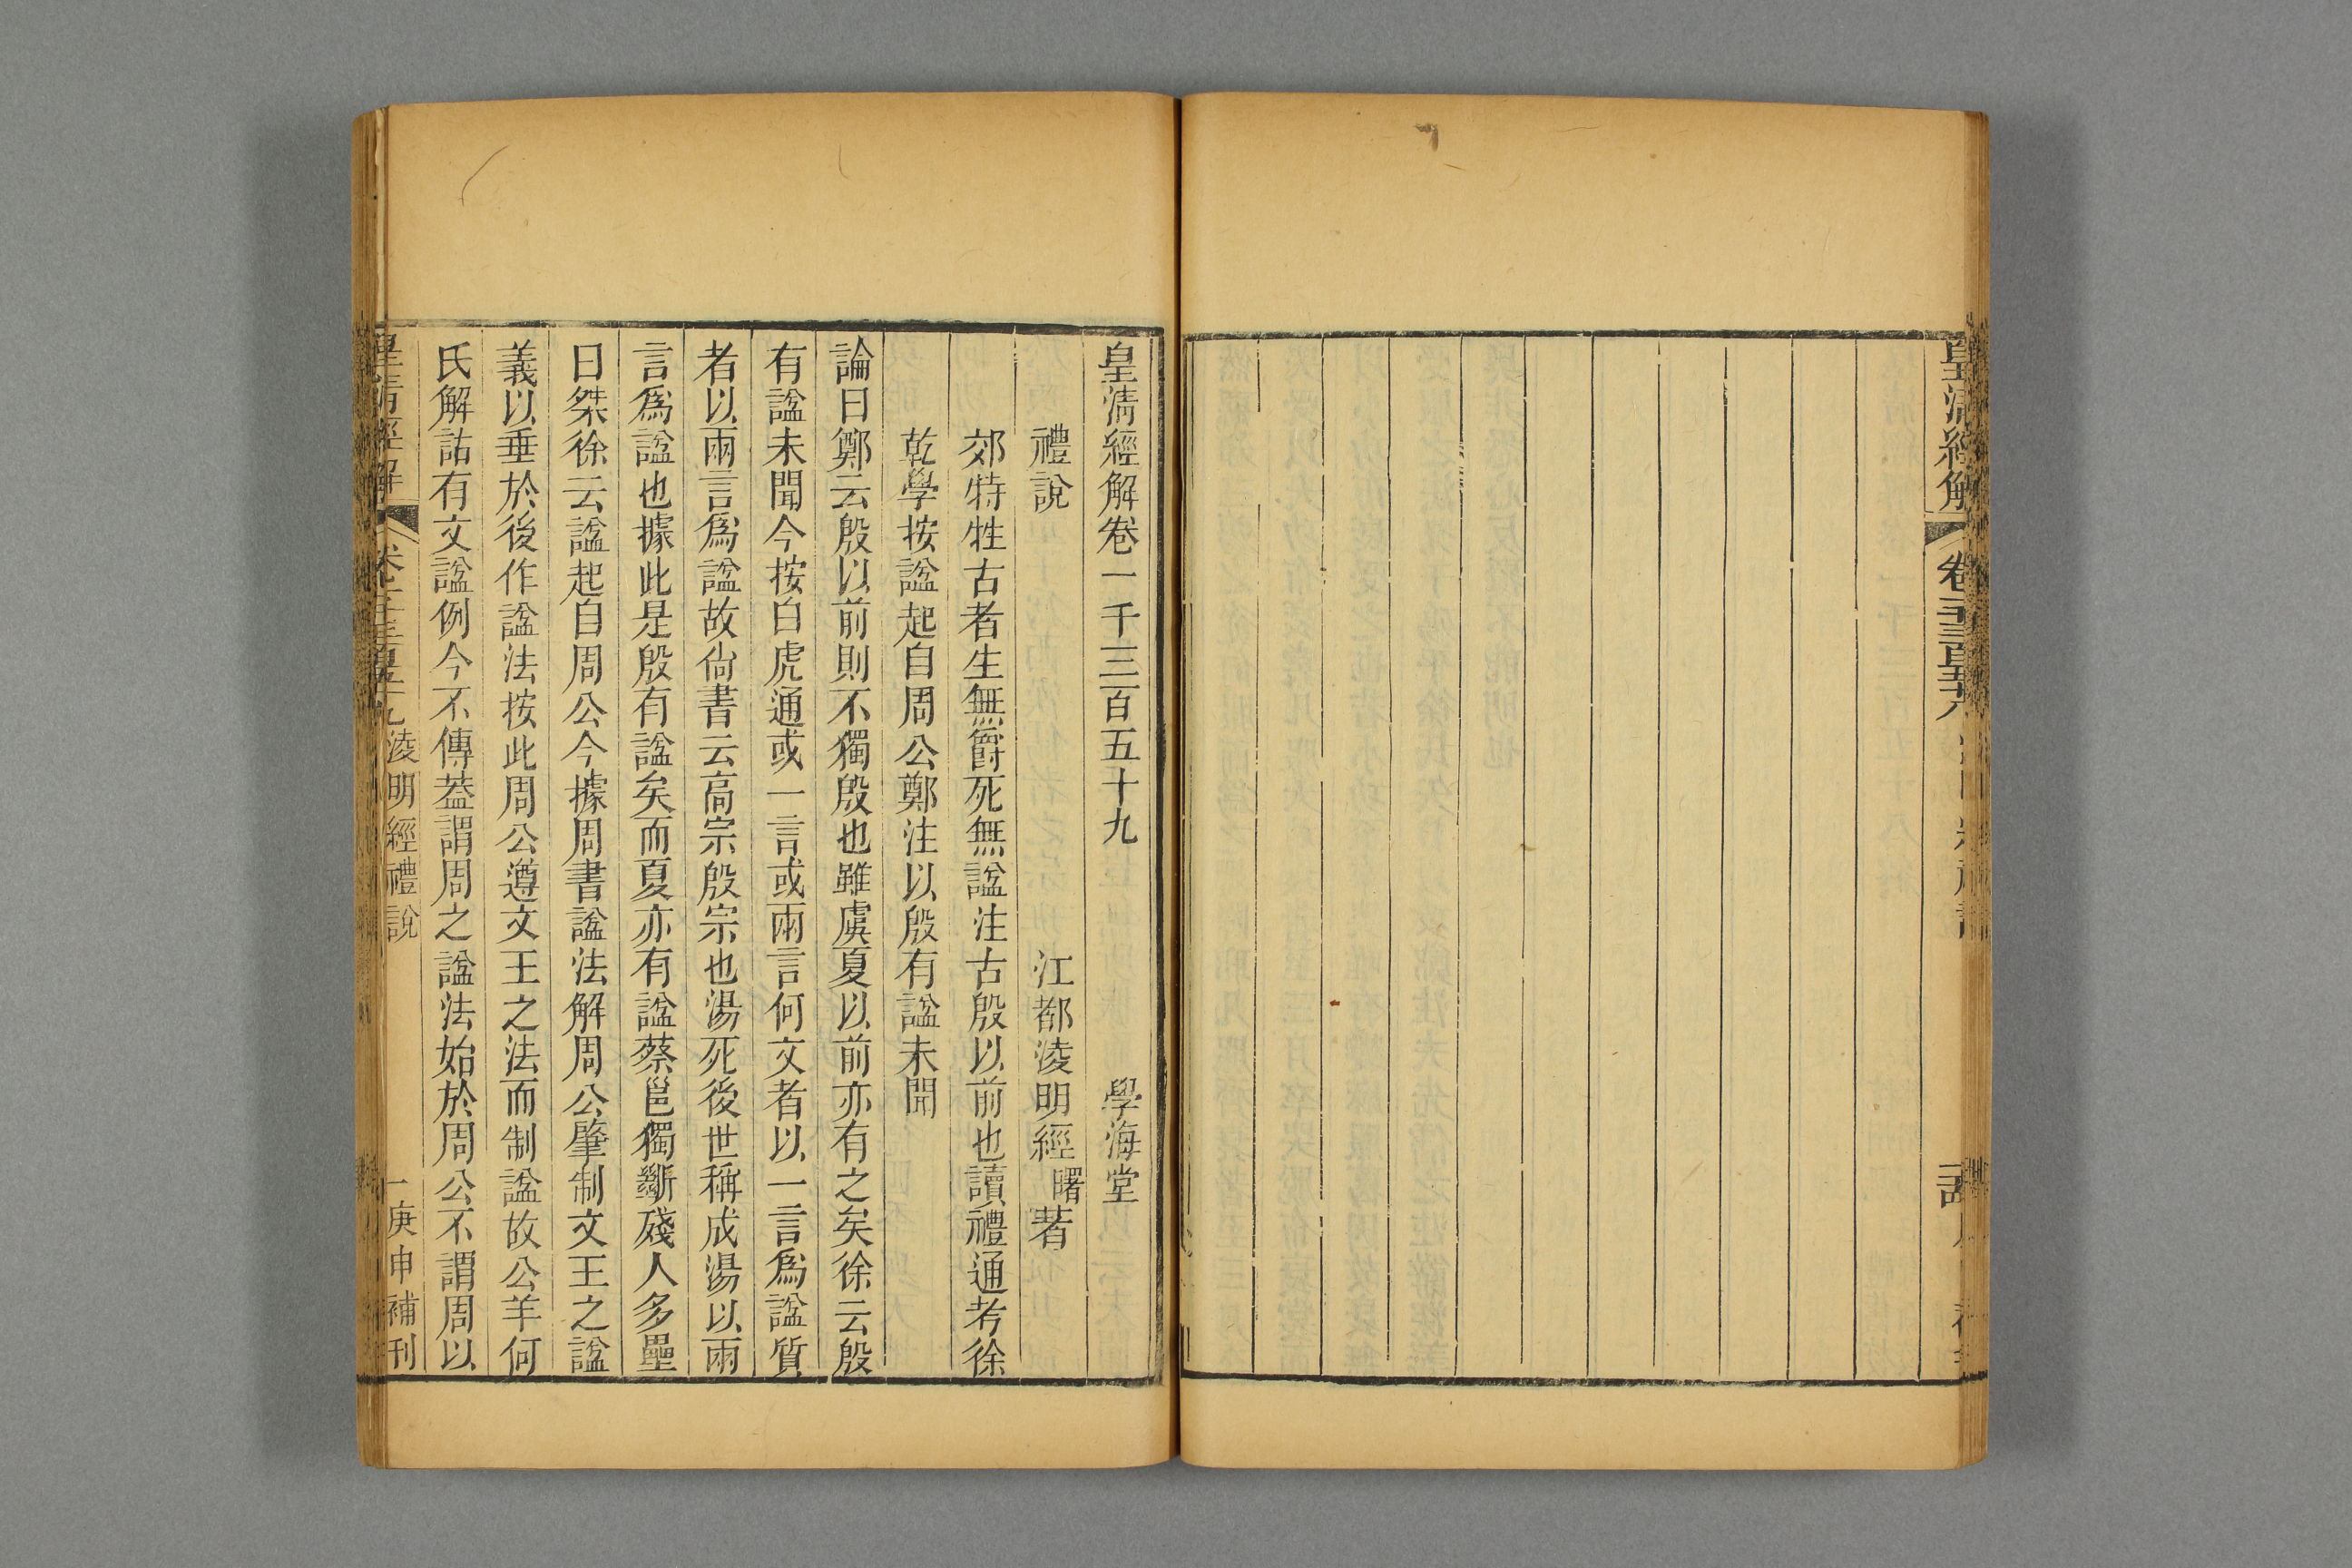 皇清經解
皇清經解卷一千三百五十九　學海堂
禮說　江都淩明經曙著
郊特牲古者生無爵死無謚注古殷以前也讀禮通考徐
乾學按謚起自周公鄭注以殷有謚未聞
論曰鄭云殷以前則不獨殷也雖虞夏以前亦有之矣徐云殷
有謚未聞今按白虎通或一言或兩言何文者以一言爲謚質
者以兩言爲謚故尙書云高宗殷宗也湯死後世稱成湯以兩
言爲謚也據此是殷有謚矣而夏亦有謚蔡邕獨斷殘人多壘
曰桀徐云謚起自周公今據周書謚法解周公肇制文王之謚
義以垂於後作謚法按此周公遵文王之法而制謚故公羊何
氏解詁有文謚例今不傳葢謂周之謚法始於周公不謂周以
皇清經解　淩明經禮說　一　庚申補刊